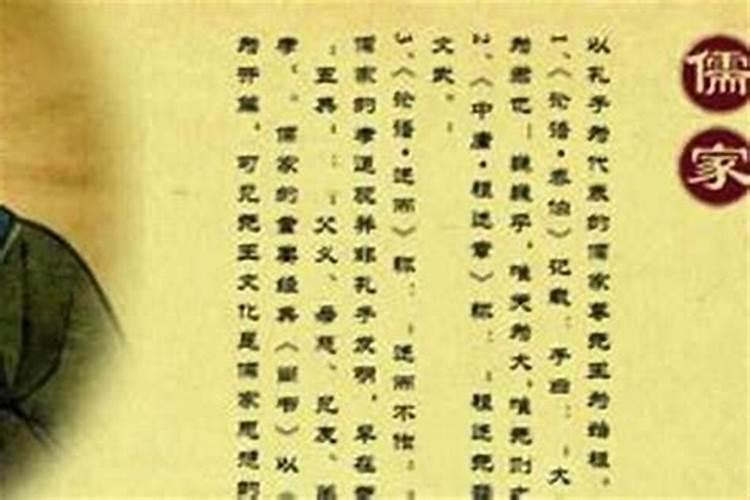 儒家
以孔子为代表的儒家尊尧王为始祖。
1、《论语·泰伯》记载：子曰：“大
为君也！巍巍乎，唯天为大，唯尧则
2、《中庸·祖述章》称：“祖述尧
文武。”
3、《论语·述而》称：“述而不作，
儒家的孝道观并非孔子发明，早在
“五典”：“父义、母慈、兄友、
孝”。儒家的重要经典《尚书》以
为开篇，可见尧王文化是儒家思想的